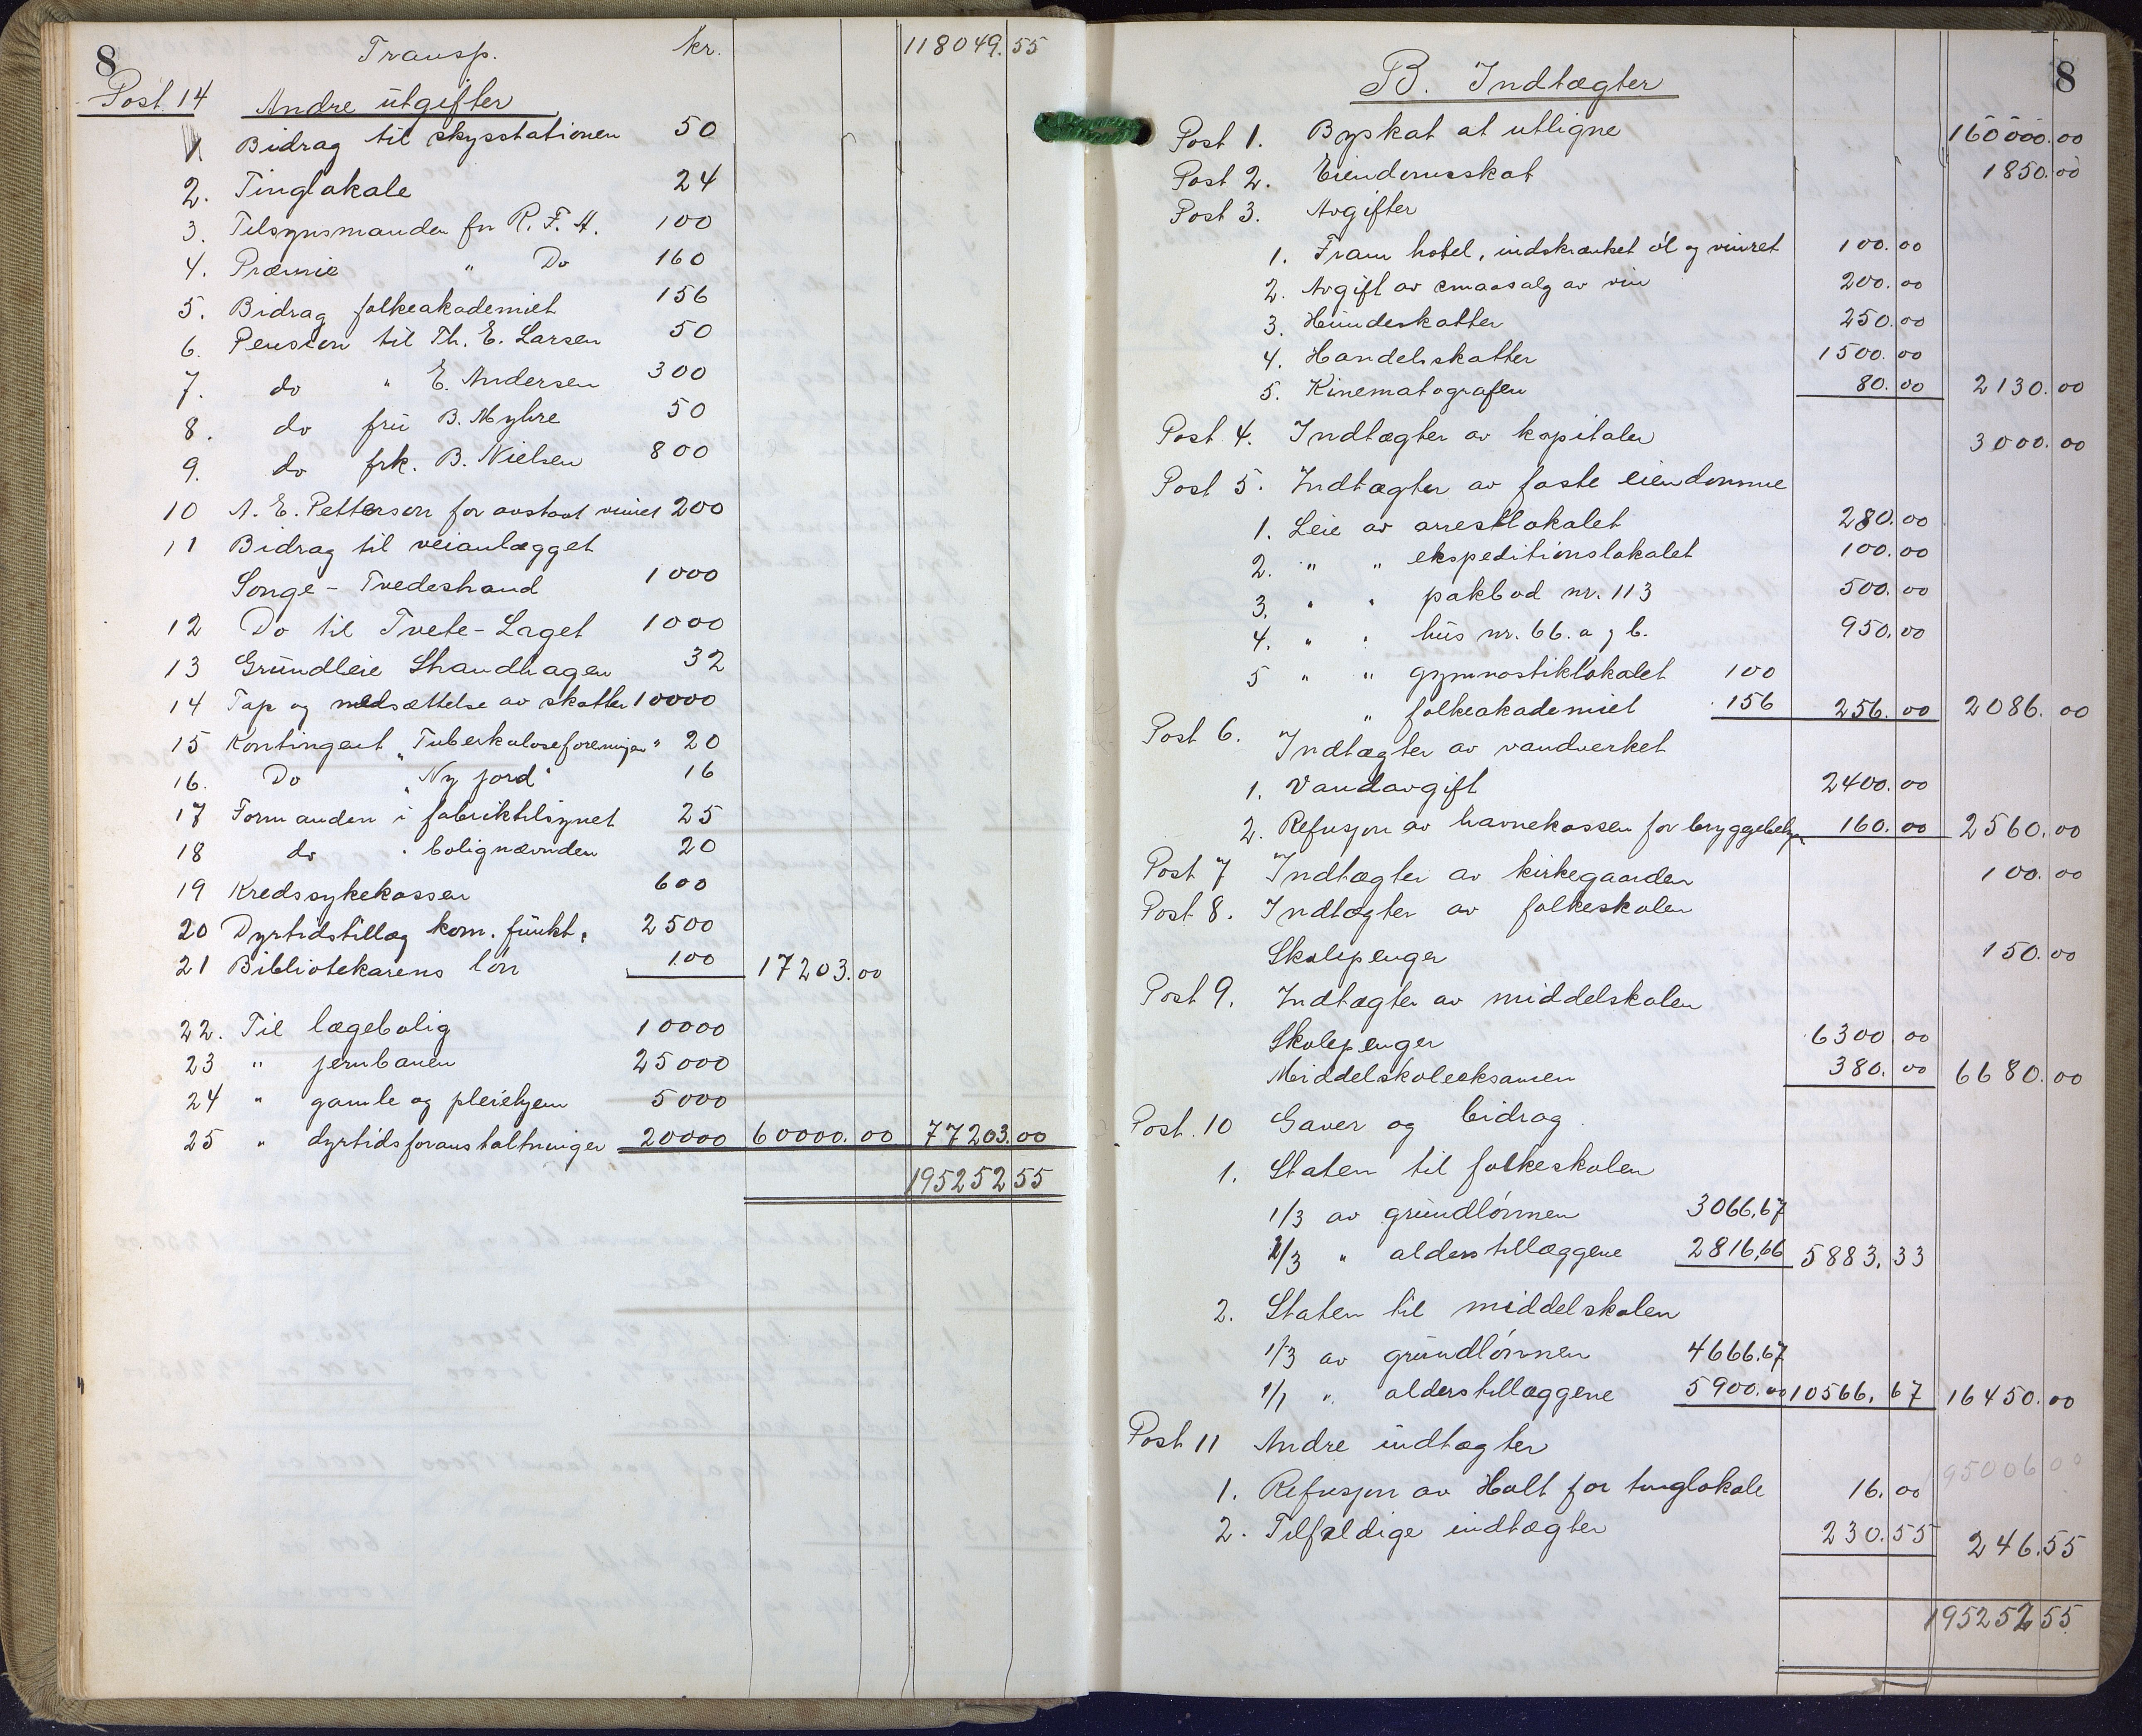 8 Transp. kr. 118049.55
Post 14 Andre utgifter
1 Bidrag til skysstationen 50
2. Tinglokale 24
3. Tilsynsmanden for R. F. A. 100
4. Præmie " Do 160
5. Bidrag folkeakademiet 156
6. Pension til Th. E. Larsen 50
7. do " E. Andersen 300
8. do fru B. Myhre 50
9. do frk. B. Nielsen 800
10 A. E. Petterson for avstaat 200
11 Bidrag til veianlægget
Songe - Tvedestrand 1000
12 Do til Tvete-Laget 1000
13 Grundleie Strandhagen 32
14 Tap og nedsættelse av skatter 10000
15 Kontingent "Tuberkuloseforeningen" 20
16. Do "Ny jord" 16
17 Formanden i fabriktilsynet 25
18 do " bolignævnden 20
19 Kredssykekassen 600
20 Dyrtidstillæg kom. funkt. 2500
21 Bibliotekarens løn 100 17203.00
22. Til lægebolig 10000
23 " jernbanen 25000
24 " gamle og pleiehjem 5000
25 " dyrtidsforanstaltninger 20000 60000.00 77203.00
195252 55
8
B. Indtægter
Post 1. Byskat at utligne 160000.00
Post 2. Eiendomsskat 1850.00
Post 3. Avgifter
1. Fram hotel, indskrænket øl og vinret 100.00
2. Avgift av smaasalg av vin 200.00
3. Hundeskatter 250.00
4. Handelsskatter 1500.00
5. Kinematografen 80.00 2130.00
Post 4. Indtægter av kapitaler 3000.00
Post 5. Indtægter av faste eiendomme
1. Leie av arrestlokalet 280.00
2. " " ekspeditionslokalet 100.00
3. " " pakbod nr. 113 500.00
4. " " hus nr. 66. a og b. 950.00
5 " " gymnastiklokalet 100
" folkeakademiet 156 256.00 2086.00
Post 6. Indtægter av vandverket
1. Vandavgift 2400.00
2. Refusjon av havnekassen for 160.00 2560.00
Post 7 Indtægter av kirkegaarden 100.00
Post 8. Indtægter av folkeskolen
Skolepenger 150.00
Post 9. Indtægter av middelskolen
Skolepenger 6300.00
Middelskoleeksamen 380.00 6680.00
Post. 10 Gaver og bidrag.
1. Staten til folkeskolen
1/3 av grundlønnen 3066,67
1/3 " alderstillæggene 2816,66 5883,33
2. Staten til middelskolen
1/3 av grundlønnen 4666,67
1/1 " alderstillæggene 5900.00 10566,67 16450.00
Post 11 Andre indtægter 195006 00
1. Refusjon av Holt for tinglokale 16.00
2. Tilfældige indtægter 230.55 246.55
195252 55